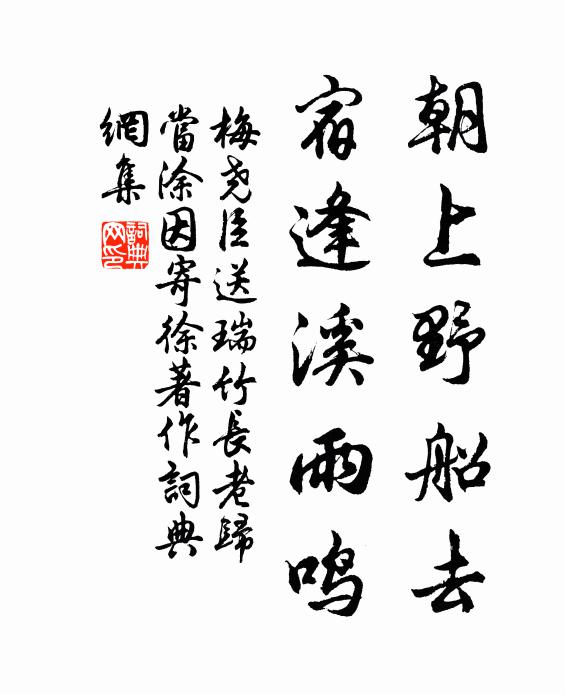 朝上野船去
宿逢溪雨鸣
梅尧臣送瑞竹長老歸
當涂因寄徐著作詞典
網集
詞典网印